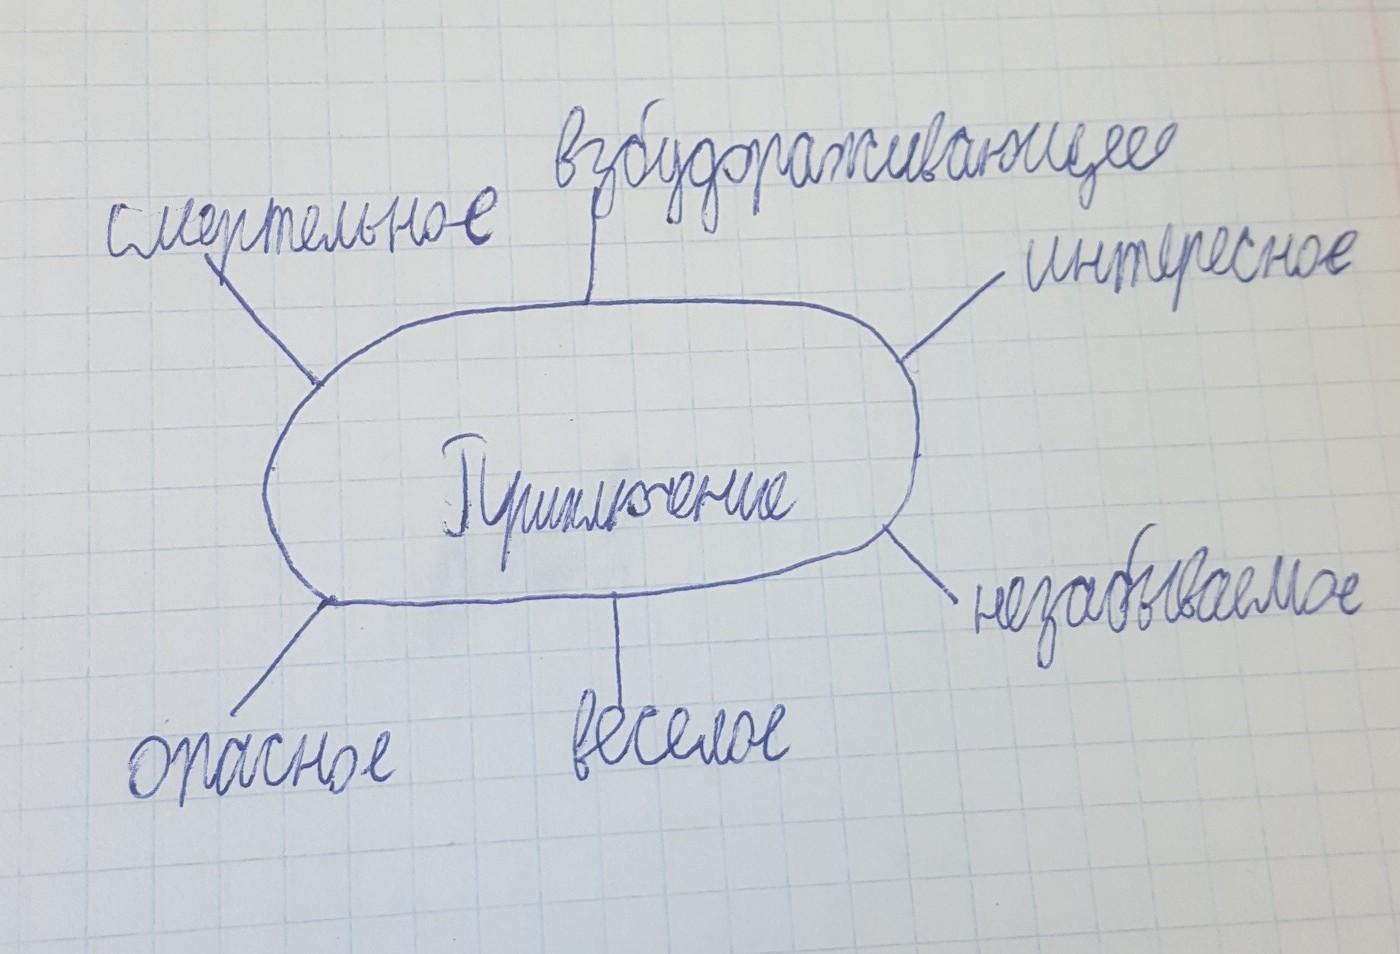 взбудораживающее
смертельное
интересное
Приключение
незабываемое
веселое
опасное